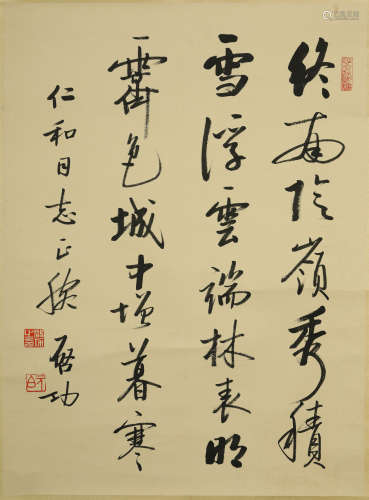 終南陰嶺秀積
雪浮雲端林表明
霽色城中增暮寒
仁和同志正腕 启功